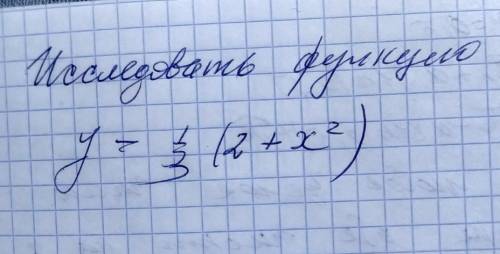 Исследовать функцию
y = 1/3 (2 + x²)